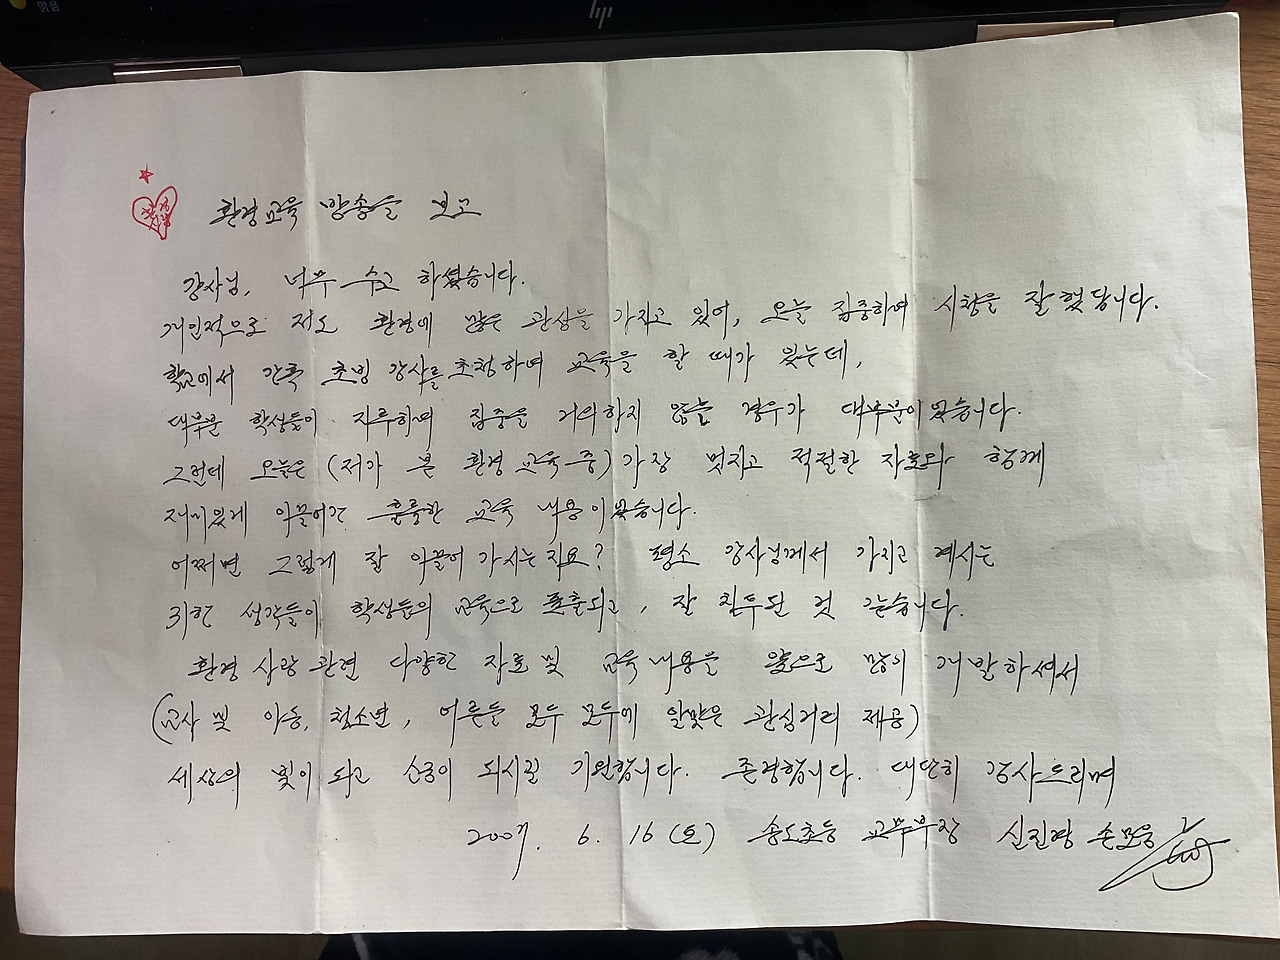 맑음
hp
환경교육 방송을 보고
강사님, 너무 수고 하셨습니다.
개인적으로 저도 환경에 많은 관심을 가지고 있어, 오늘 집중하며 시청을 잘 했답니다.
학교에서 간혹 초빙 강사를 초청하여 교육을 할 때가 있는데,
대부분 학생들이 지루하며 집중을 거의하지 않는 경우가 대부분이었습니다.
그런데 오늘은 (저가 본 환경 교육 중) 가장 멋지고 적절한 자료와 함께
재미있게 이끌어간 훌륭한 교육 내용이었습니다.
어쩌면 그렇게 잘 이끌어 가시는지요? 평소 강사님께서 가지고 계시는
귀한 생각들이 학생들의 교육으로 표출되고, 잘 침투된 것 같습니다.
환경 사랑 관련 다양한 자료 및 교육내용을 앞으로 많이 개발하셔서
(교사 및 아동, 청소년, 어른들 모두 모두에 알맞은 관심거리 제공)
세상의 빛이 되고 소금이 되시길 기원합니다. 존경합니다. 대단히 감사드리며
2007. 6. 16 (토) 송도초등 교무부장 신진경 손모음